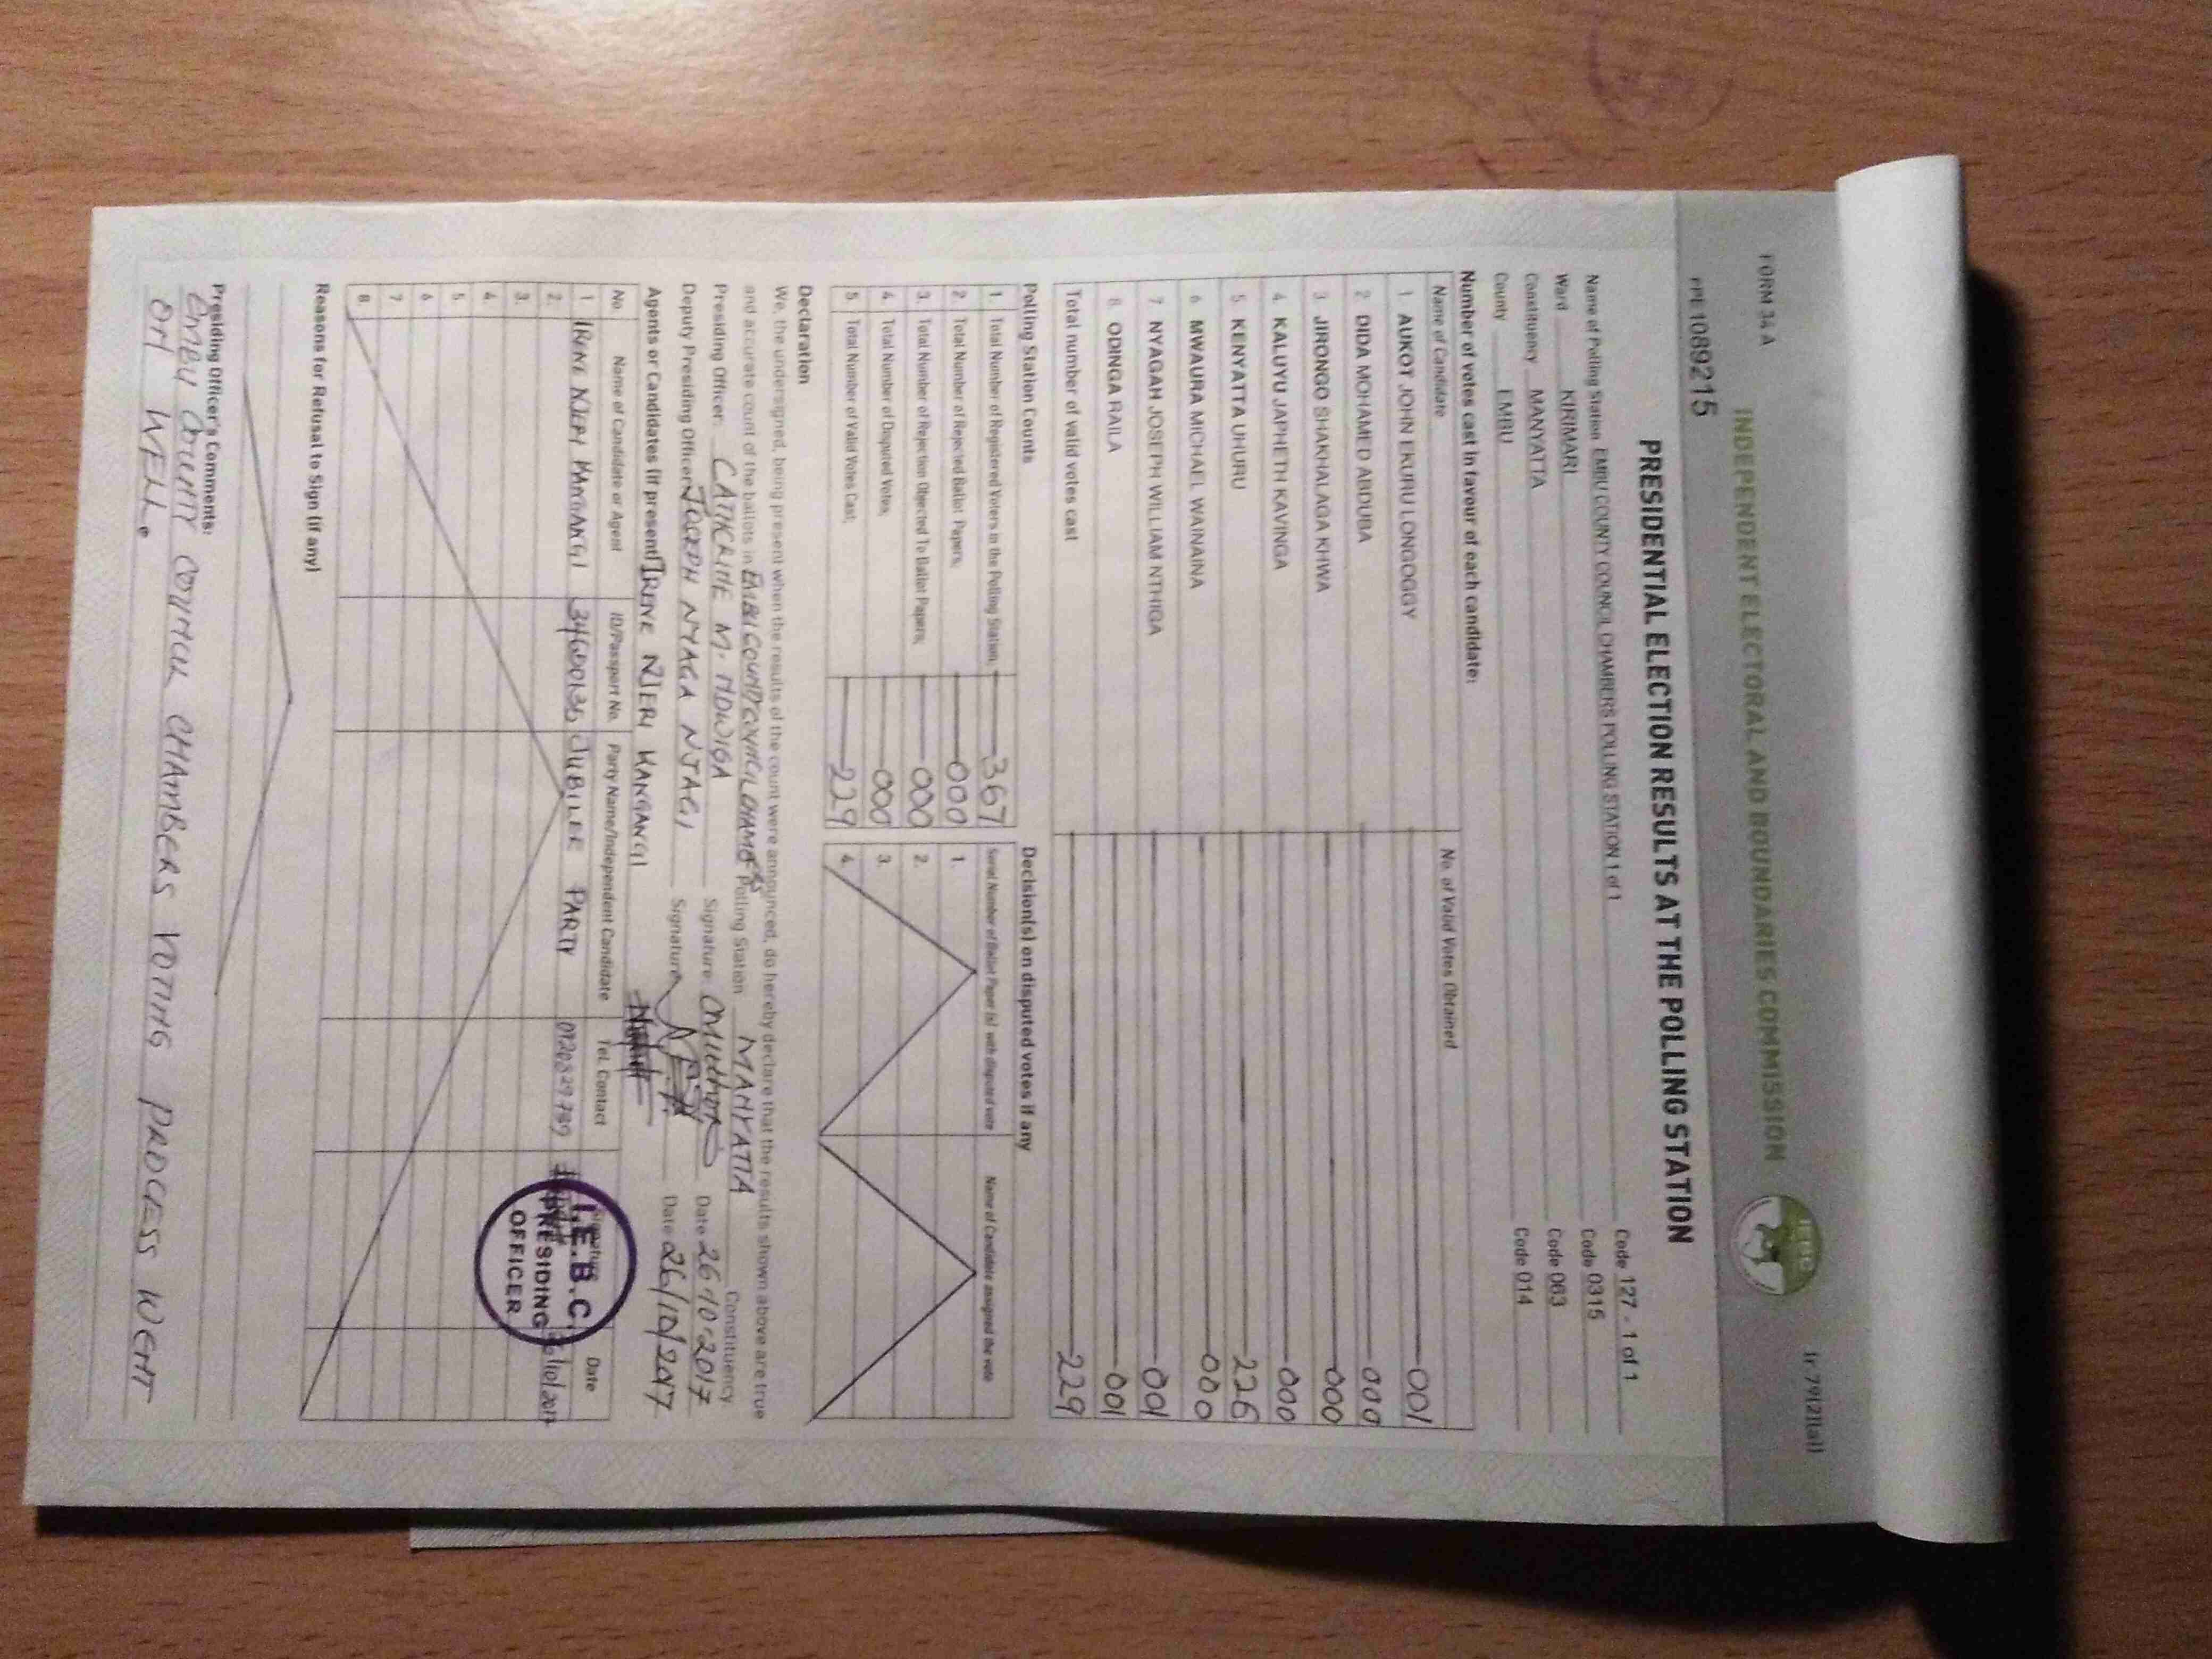 FORM 34A
(r.79(2)(a))
INDEPENDENT ELECTORAL AND BOUNDARIES COMMISSION
IEBC
PE1089215
PRESIDENTIAL ELECTION RESULTS AT THE POLLING STATION
Name of Polling Station EMBU COUNTY COUNCIL CHAMBERS POLLING STATION 1 of 1 Code 127 - 1 of 1
Ward KIRIMARI Code 0315
Constituency MANYATTA Code 063
County EMBU Code 014
Number of votes cast in favour of each candidate:
Name of Candidate No. of Valid Votes Obtained
1 AUKOT JOHN EKURU LONGOGGY 001
2 DIDA MOHAMED ABDUBA 000
3 JIRONGO SHAKHALAGA KHWA 000
4 KALUYU JAPHETH KAVINGA 000
5 KENYATTA UHURU 226
6 MWAURA MICHAEL WAINAINA 000
7 NYAGAH JOSEPH WILLIAM NTHIGA 001
8 ODINGA RAILA 001
Total number of valid votes cast 229
Polling Station Counts
1. Total Number of Registered Voters in the Polling Station; 367
2. Total Number of Rejected Ballot Papers; 000
3. Total Number of Rejection Objected To Ballot Papers; 000
4. Total Number of Disputed Votes; 000
5. Total Number of Valid Votes Cast; 229
Decision(s) on disputed votes if any
Serial Number of Ballot Paper (s) with disputed vote Name of Candidate assigned the vote
1.
2.
3.
4.
Declaration
We, the undersigned, being present when the results of the count were announced, do hereby declare that the results shown above are true
and accurate count of the ballots in EMBU COUNTY COUNCIL CHAMBERS Polling Station MANYATTA Constituency
Presiding Officer: CATHERINE M. NDWIGA Signature Date 26-10-2017
Deputy Presiding Officer JOSEPH NYAGA NJAGI Signature Date 26/10/2017
Agents or Candidates (if present) IRENE NJERI KANGANGI
No. Name of Candidate or Agent ID/Passport No. Party Name/Independent Candidate Tel. Contact Signature Date
1 IRENE NJERI KANGANGI JUBILEE PARTY 26/10/2017
2.
3.
4.
5
6
7
8
I.E.B.C.
PRESIDING
OFFICER
Reasons for Refusal to Sign (if any)
Presiding Officer's Comments:
EMBU COUNTY COUNCIL CHAMBERS VOTING PROCESS WENT
ON WELL.